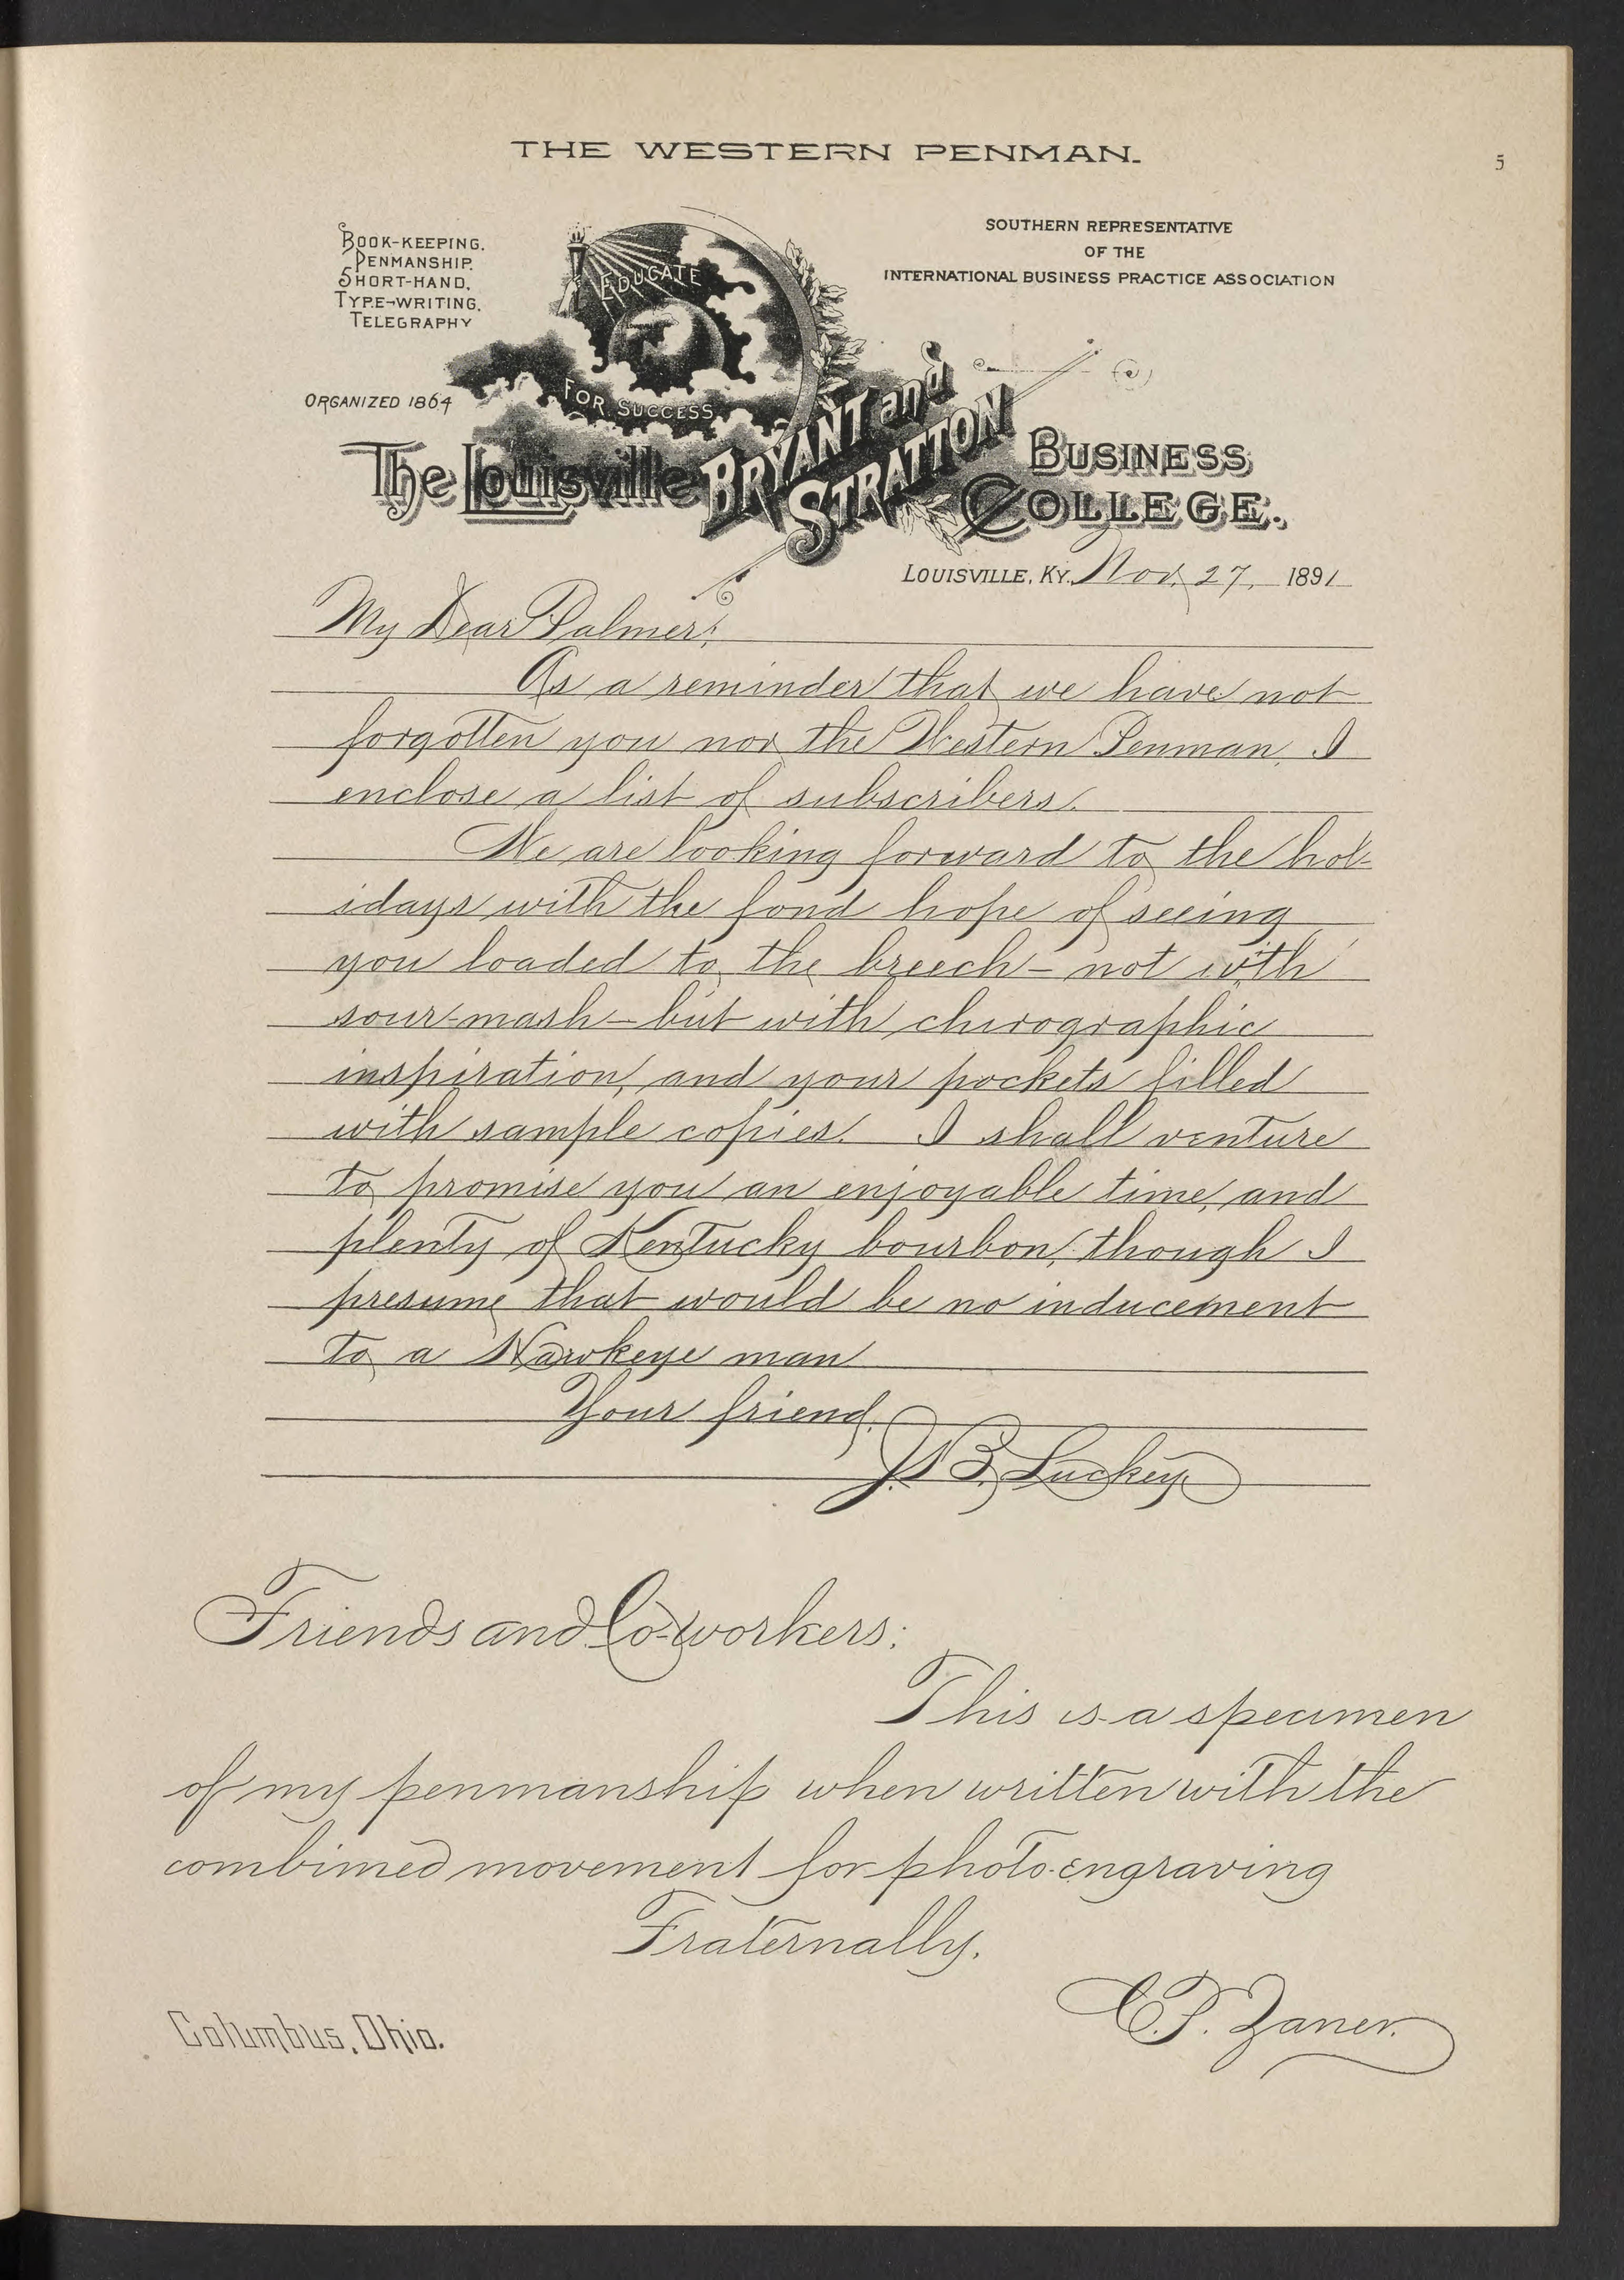 THE WESTERN PENMAN.
5
BOOK-KEEPING.
PENMANSHIP.
SHORT-HAND.
TYPE-WRITING.
TELEGRAPHY
ORGANIZED 1864
EDUCATE
FOR SUCCESS
SOUTHERN REPRESENTATIVE
OF THE
INTERNATIONAL BUSINESS PRACTICE ASSOCIATION
The Louisville BRYANT and STRATTON BUSINESS COLLEGE.
LOUISVILLE, KY. Nov. 27, 1891
My Dear Palmer:
As a reminder that we have not
forgotten you nor the Western Penman, I
enclose a list of subscribers.
We are looking forward to the hol-
idays with the fond hope of seeing
you loaded to the breech - not with
sour-mash - but with chirographic
inspiration, and your pockets filled
with sample copies. I shall venture
to promise you an enjoyable time, and
plenty of Kentucky bourbon, though I
presume that would be no inducement
to a Hawkeye man
Your friend,
J. B. Luckey
Friends and Co-workers:
This is a specimen
of my penmanship when written with the
combined movement for photo-engraving
Fraternally,
C.P. Zaner.
Columbus, Ohio.